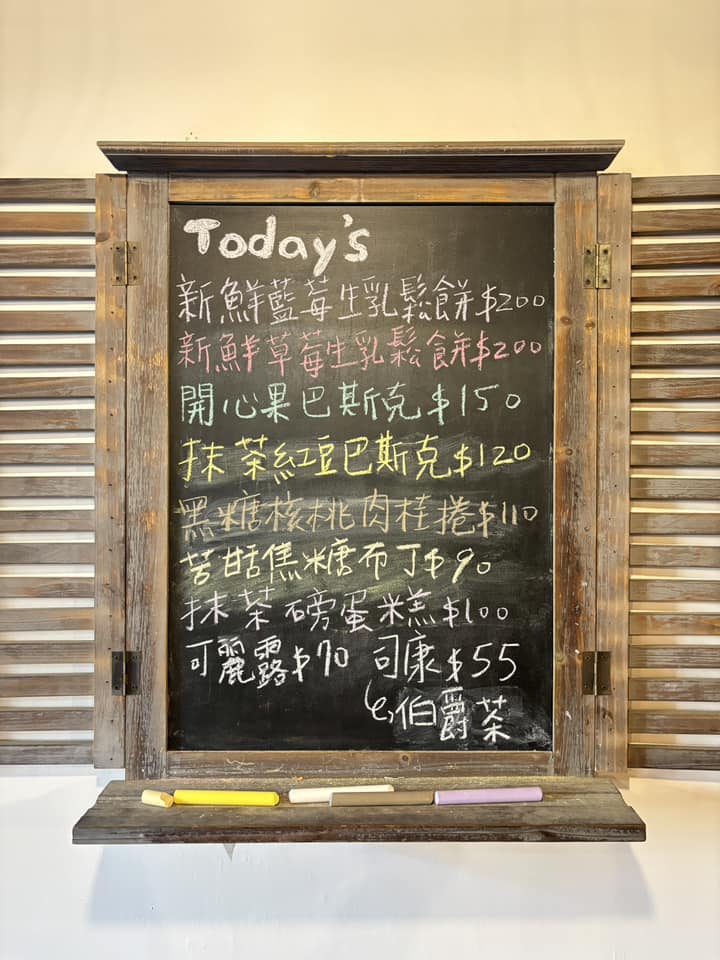 Today's
新鮮藍莓生乳鬆餅$200
新鮮草莓生乳鬆餅$200
開心果巴斯克$150
抹茶紅豆巴斯克$120
黑糖核桃肉桂捲$110
苦甜焦糖布丁$90
抹茶磅蛋糕$100
可麗露$70 司康$55
伯爵茶